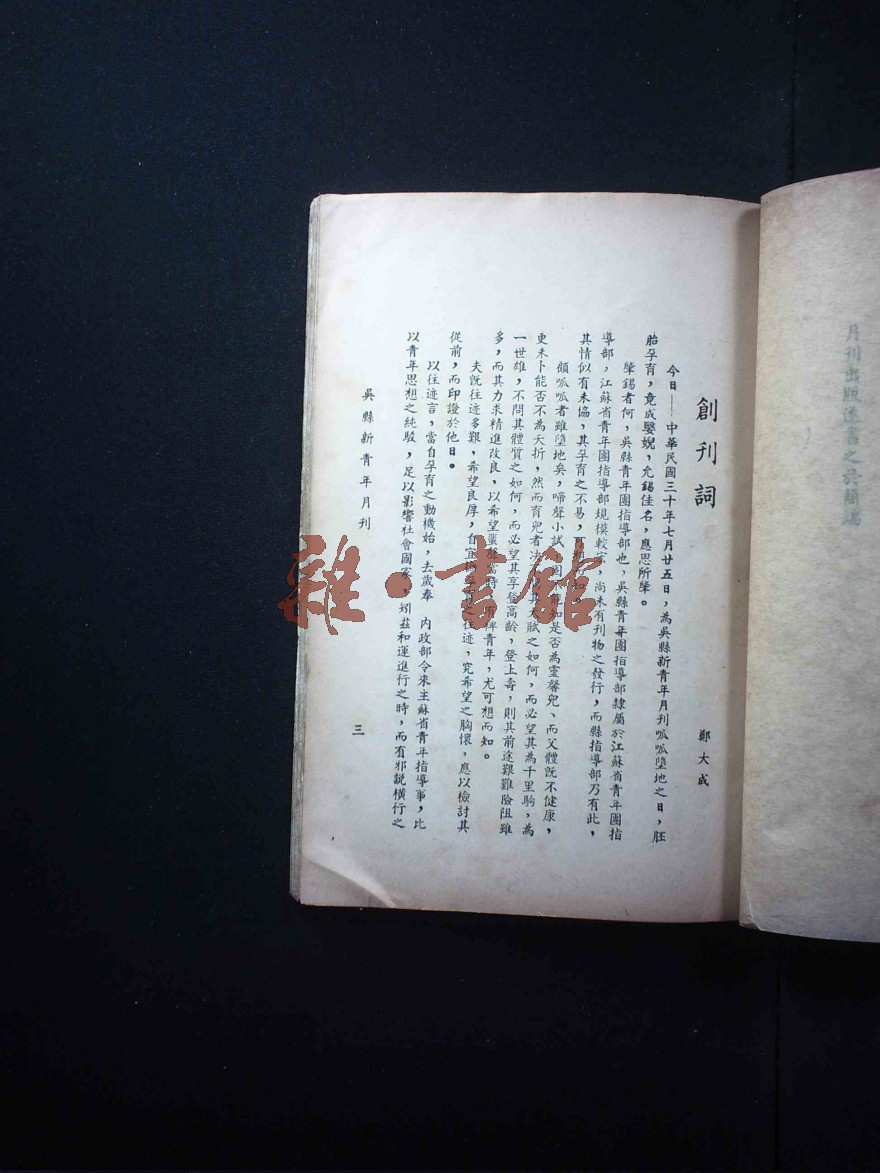 月刊出版
創刊詞
鄭大成
今日——中華民國三十年七月廿五日，為吳縣新青年月刊呱呱墮地之日，胚
胎孕育，竟成嬰婗，允錫佳名，應思所肇。
肇錫者何，吳縣青年團指導部也，吳縣青年團指導部隸屬於江蘇省青年團指
導部，江蘇省青年團指導部規模較 尚未有刊物之發行，而縣指導部乃有此，
其情似有未協，其孕育之不易，可 知。
顧呱呱者雖墮地矣，啼聲小試， 知是否為靈馨兒、而父體旣不健康，
更未卜能否不為夭折，然而育兒者決 其 賦之如何，而必望其為千里駒，為
一世雄，不問其體質之如何，而必望其享登高齡，登上壽，則其前途艱難險阻雖
多，而其力求精進改良，以希望蜚聲當時， 裨青年，尤可想而知。
夫旣往迹多艱，希望良厚，自宜 往迹，究希望之胸懷，應以檢討其
從前，而印證於他日。
以往迹言，當自孕育之動機始，去歲奉 內政部令來主蘇省青年指導事，比
以青年思想之純駁，足以影響社會國家，矧茲和運進行之時，而有邪說橫行之
吳縣新青年月刊
三
雜·書館